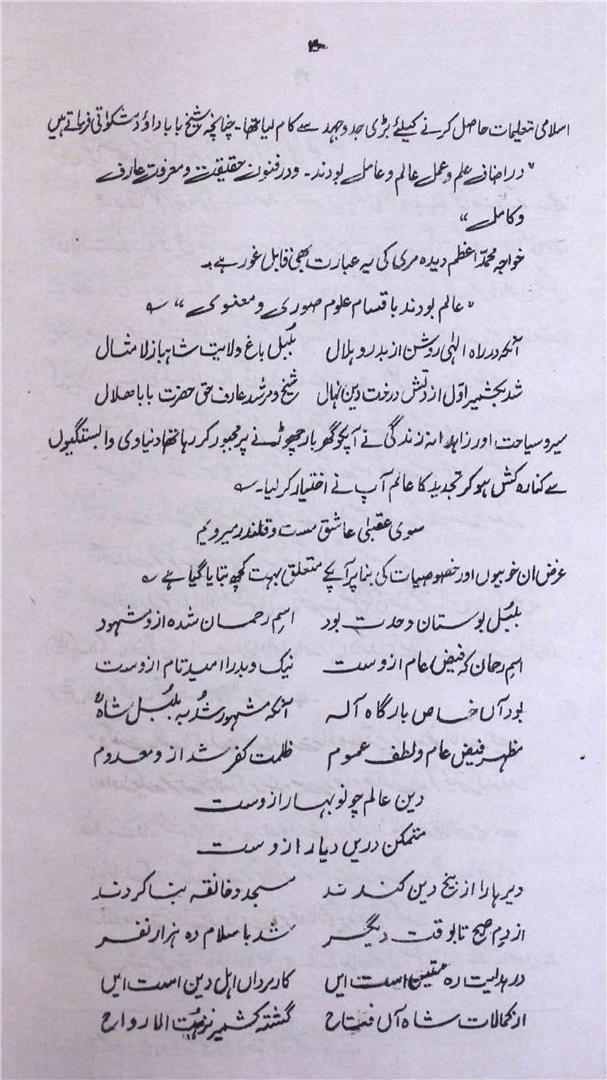 ۴۰
اسلامی تعلیمات حاصل کرنے کیلئے بڑی جدوجہد سے کام لیا تھا۔ چنانچہ شیخ بابا داؤد مشکوٰتی فرماتے ہیں
"در اضاف علم و عمل عالم و عامل بودند۔ ودر فنون حقیقت و معرفت عارف
وکامل"
خواجہ محمد اعظم دیدہ مری کی یہ عبارت بھی قابل غور ہے۔
"عالم بودند با قسام علوم صوری و معنوی"
آنکہ در راہ الٰہی روشن از بدر و ہلال بلبل باغ ولایت شاہباز لامثال
شد بکشمیر اول از دتش درخت دین نہال شیخ و مرشد عارف حق حضرت بابا ھلال
سیر و سیاحت اور زاہدانہ زندگی نے آپکو گھر بار چھوڑنے پر مجبور کر رہا تھا دنیاوی وابستگیوں
سے کنارہ کش ہو کر تجدید کا عالم آپ نے اختیار کر لیا۔
سوی عقبیٰ عاشق مست و قلندر میرویم
غرض ان خوبیوں اور خصوصیات کی بنا پر آپکے متعلق بہت کچھ بتایا گیا ہے
بلبل بوستان وحدت بود اسم رحمان شده ازو مشہود
اسم رحمان کہ فیض عام ازوست نیک و بد را امید تام ازوست
بود آں خاص بارگاہ الہ آنکہ مشہور شد بہ بلبل شاہ
مظہر فیض عام و لطف عموم ظلمت کفر شد ازو معدوم
دین عالم چو نو بہار ازوست
متمکن دریں دیار ازوست
دیر ہارا از بیخ دین کندند مسجد و خانقہ بنا کردند
از دم صبح تا بوقت دیگر شد باسلام ده ہزار نفر
در ہدایت رہ متین است ایں کار برداں اہل دین است ایں
از کمالات شاہ آں فتاح گشتہ کشمیر نزہت الارواح